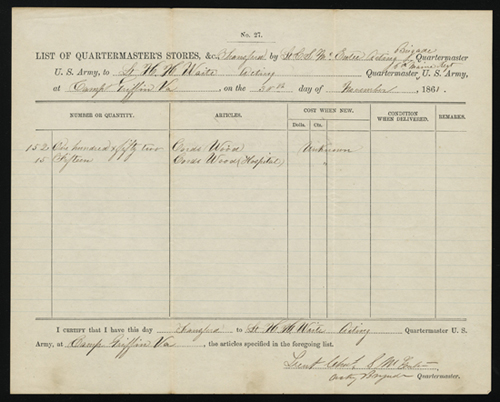 No. 27.
LIST OF QUARTERMASTER'S STORES, &c., Transferred by Lt C. S. Mc Entee Acting Brigade Quartermaster
U. S. Army, to Lt H. H. Waite Acting 6th Maine Regt Quartermaster U. S. Army,
at Camp Griffin Va, on the 30th day of November, 1861.
NUMBER OR QUANTITY. ARTICLES. COST WHEN NEW. CONDITION WHEN DELIVERED. REMARKS.
Dolls. Cts.
152 One hundred & fifty two Cords Wood Unknown
15 Fifteen Cords Wood (Hospital)
I CERTIFY that I have this day Transferred to Lt H. H. Waite Acting Quartermaster U. S.
Army, at Camp Griffin Va, the articles specified in the foregoing list.
Lieut Chas. S. McEntee
Acting Brigade Quartermaster.